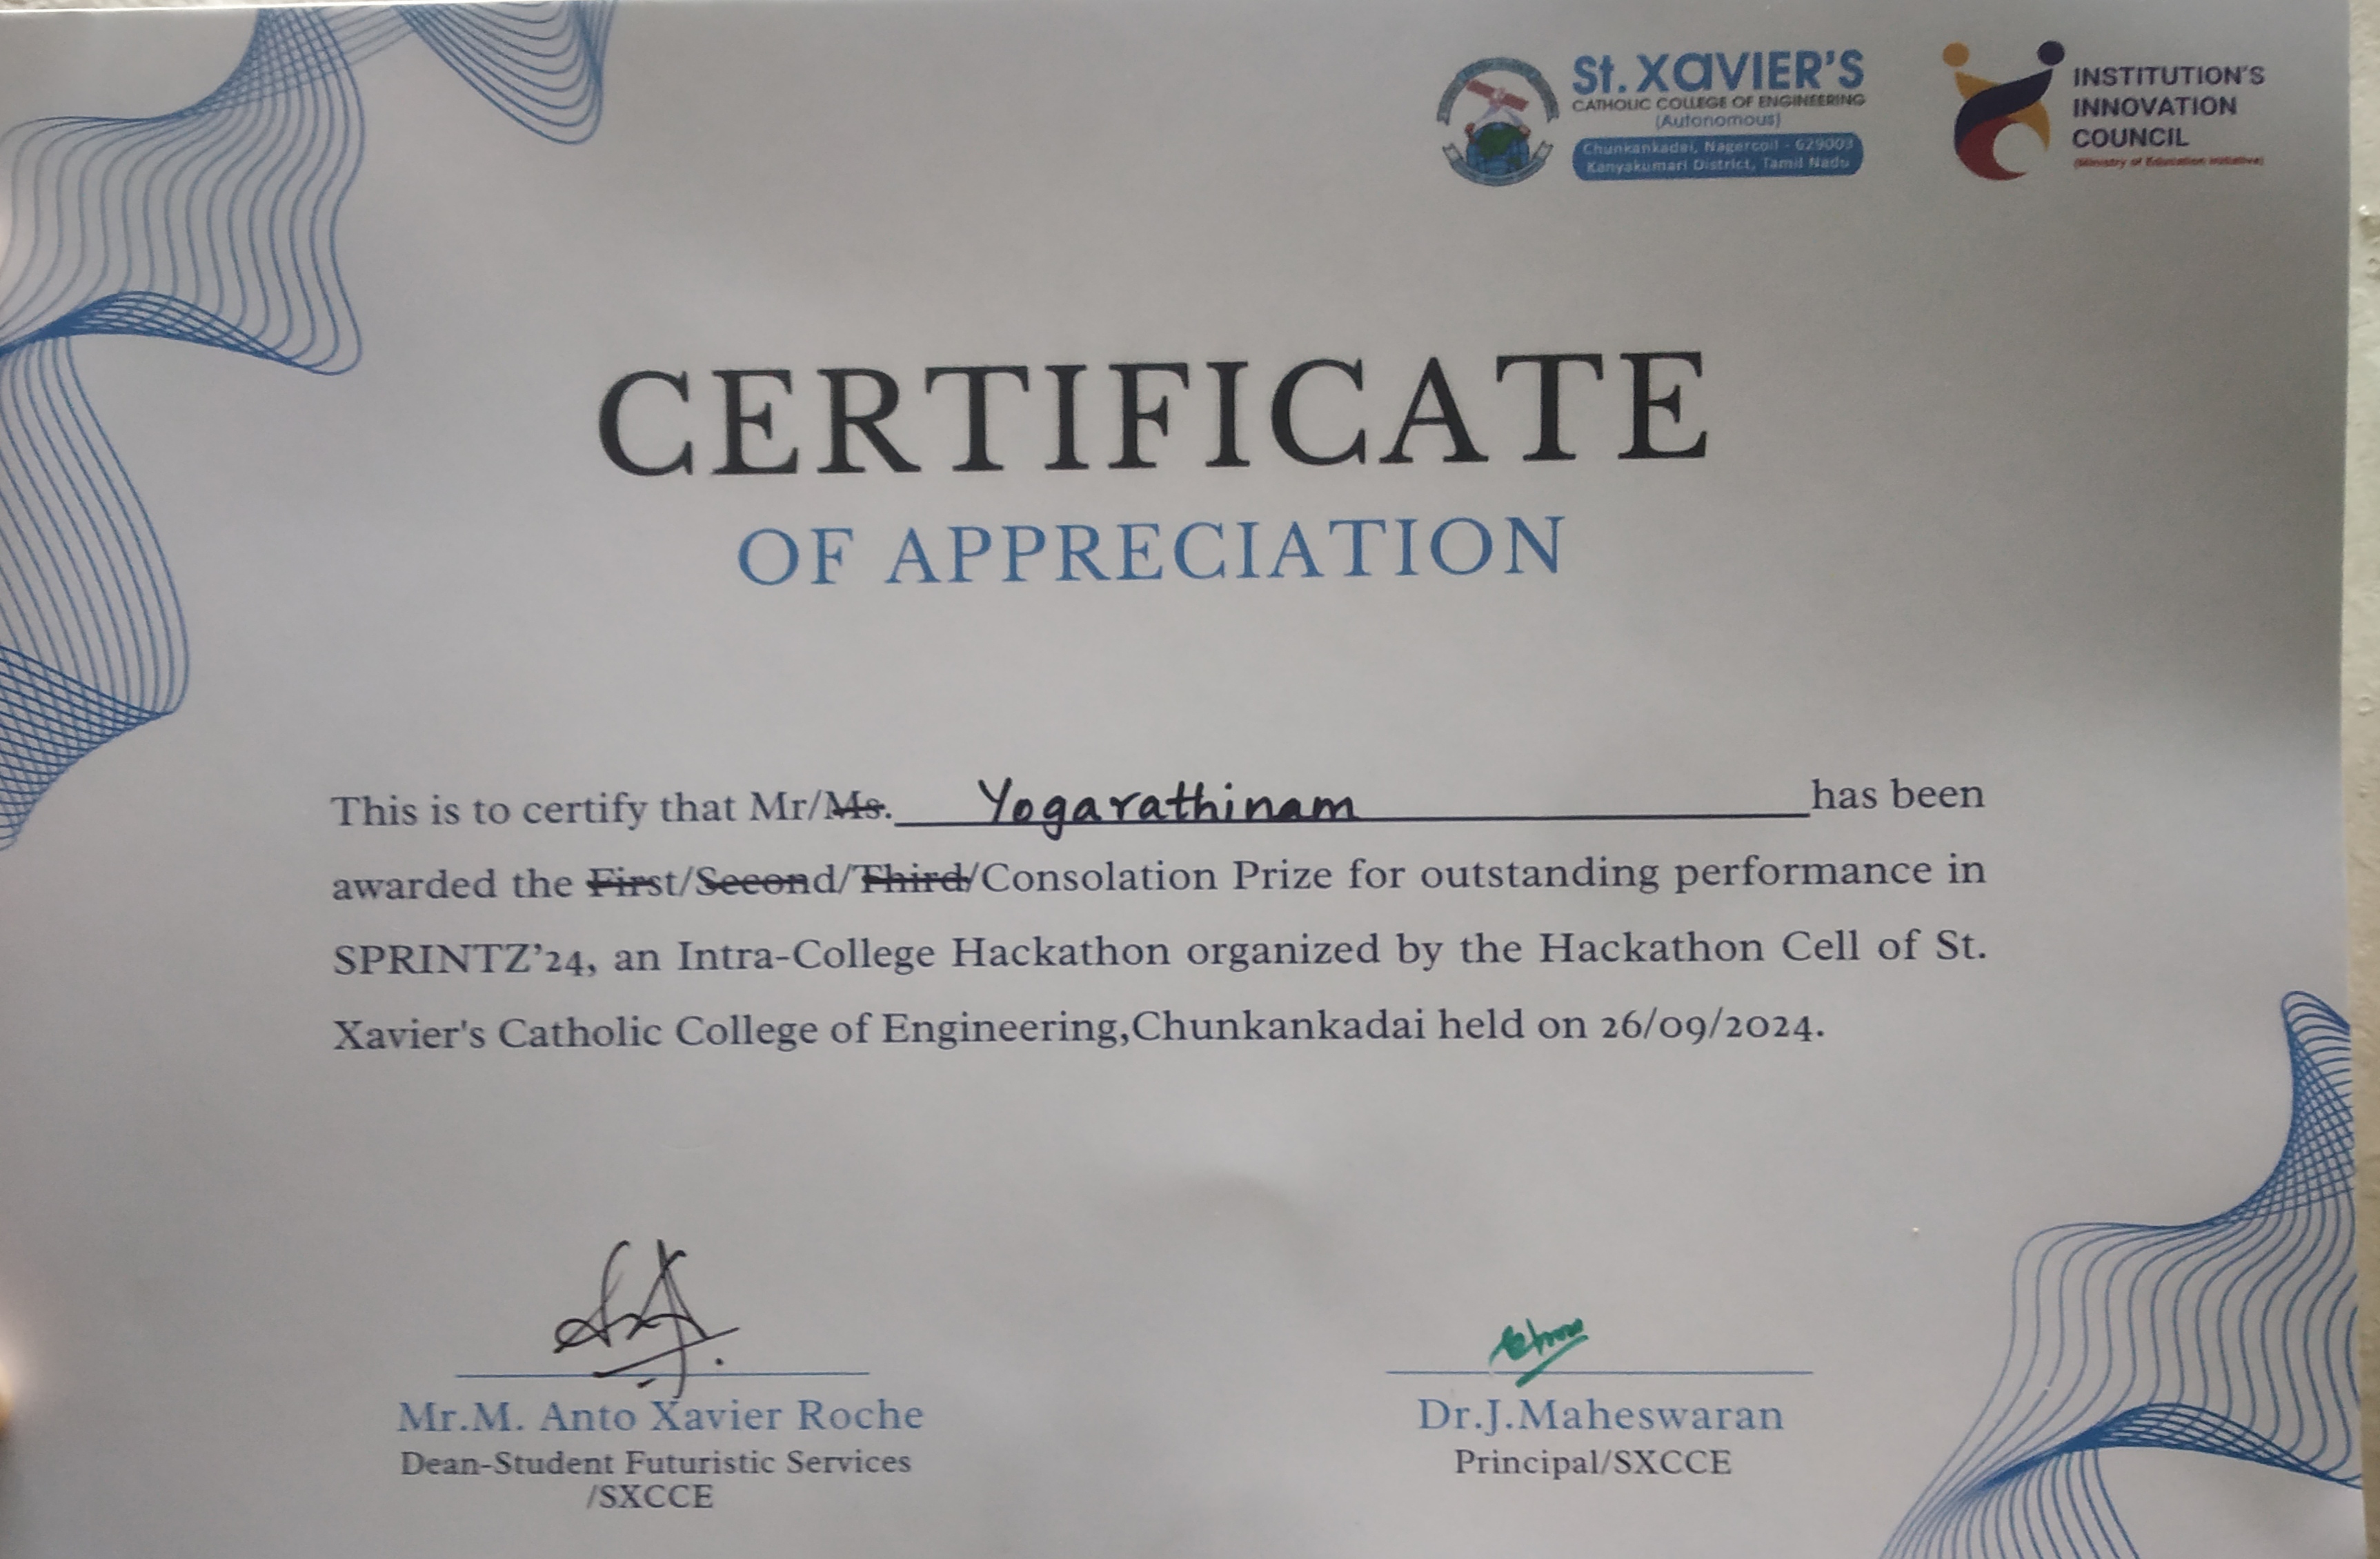 St. XAVIER'S
CATHOLIC COLLEGE OF ENGINEERING
(Autonomous)
Chunkankadai, Nagercoil - 629003
Kanyakumari District, Tamil Nadu
INSTITUTION'S
INNOVATION
COUNCIL
(Ministry of Education Initiative)
CERTIFICATE
OF APPRECIATION
This is to certify that Mr/Ms. Yogarathinam has been
awarded the First/Second/Third/Consolation Prize for outstanding performance in
SPRINTZ'24, an Intra-College Hackathon organized by the Hackathon Cell of St.
Xavier's Catholic College of Engineering,Chunkankadai held on 26/09/2024.
Mr.M. Anto Xavier Roche
Dean-Student Futuristic Services
/SXCCE
Dr.J.Maheswaran
Principal/SXCCE